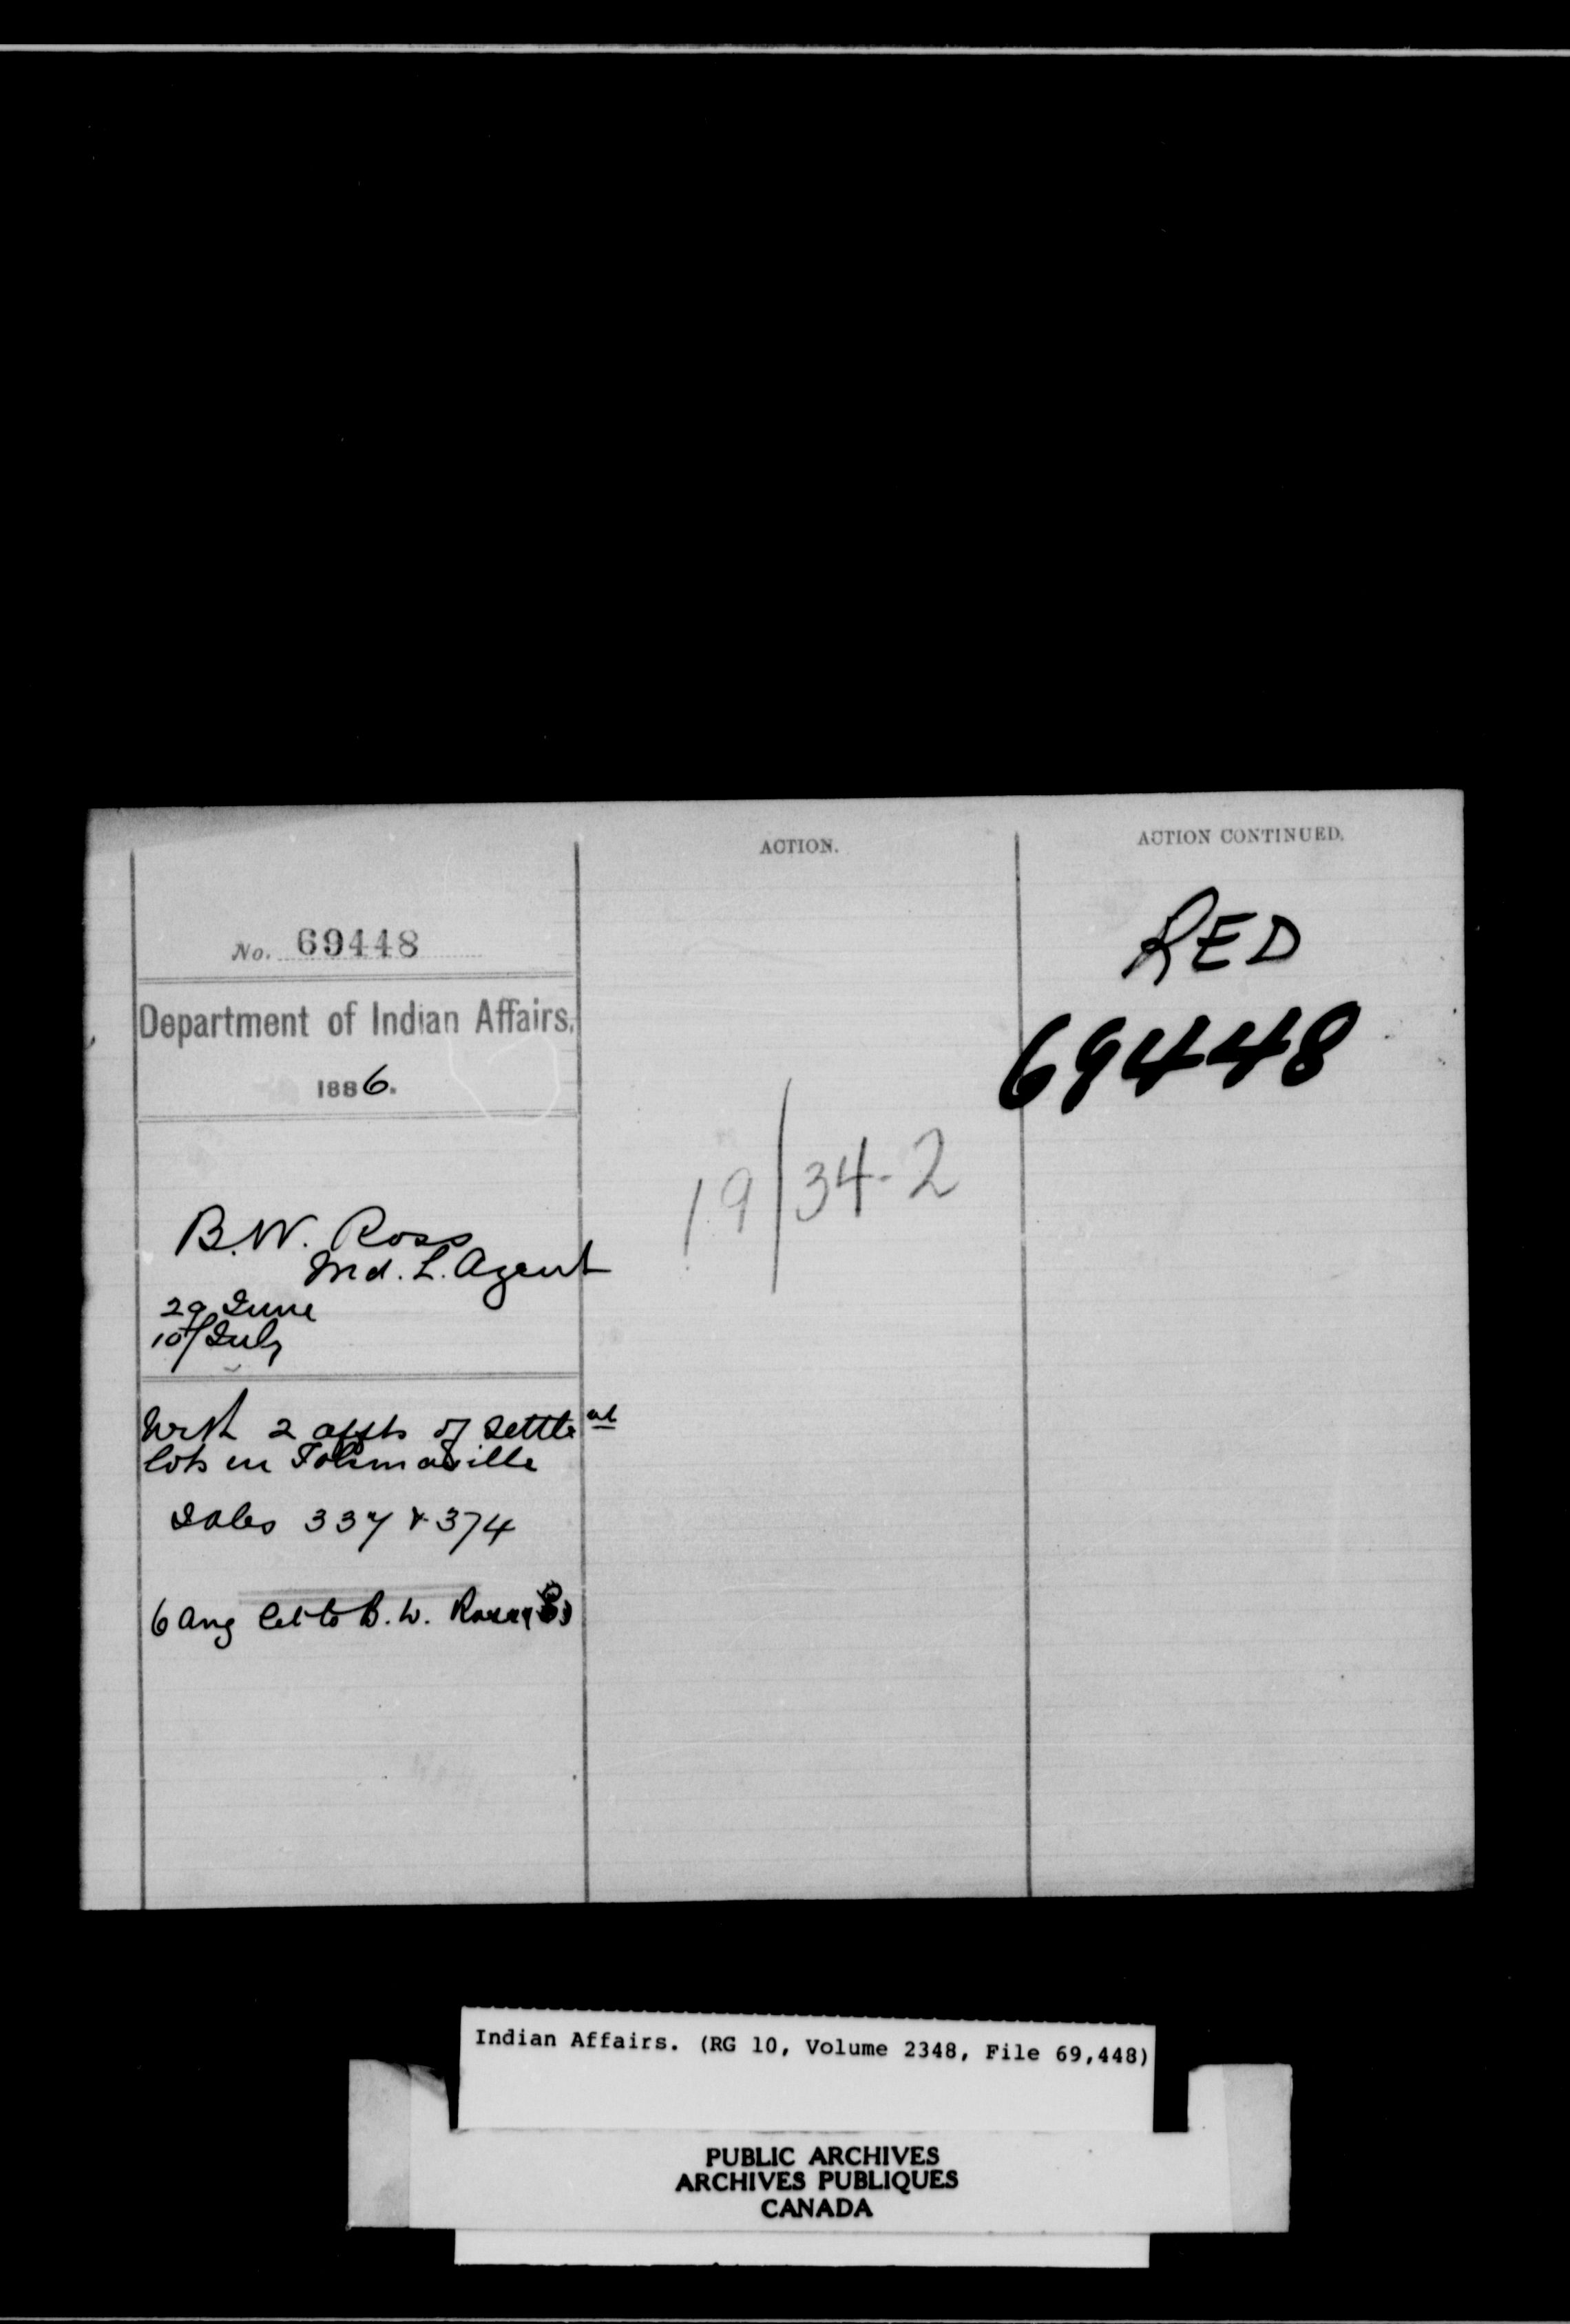 ACTION.
ACTION CONTINUED.
No. 69448
Department of Indian Affairs.
1886.
B.W. Ross
Ind. L. Agent
29 June
10/July
With 2 affts of settle
lots in
Sales 337 & 374
6 Aug Let to B. W. Ross
19/34-2
RED
69448
Indian Affairs. (RG 10, Volume 2348, File 69,448)
PUBLIC ARCHIVES
ARCHIVES PUBLIQUES
CANADA